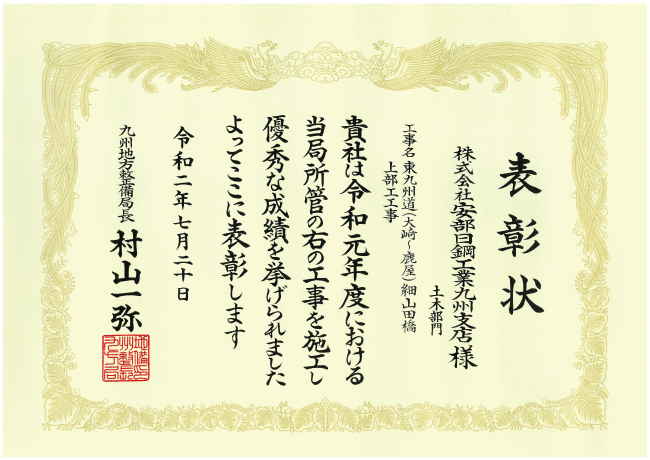 表彰状
株式会社安部日鋼工業九州支店様
土木部門
工事名 東九州道(大崎〜鹿屋)細山田橋
上部工工事
貴社は令和元年度における
当局所管の右の工事を施工し
優秀な成績を挙げられました
よってここに表彰します
令和二年七月二十日
九州地方整備局長 村山一弥